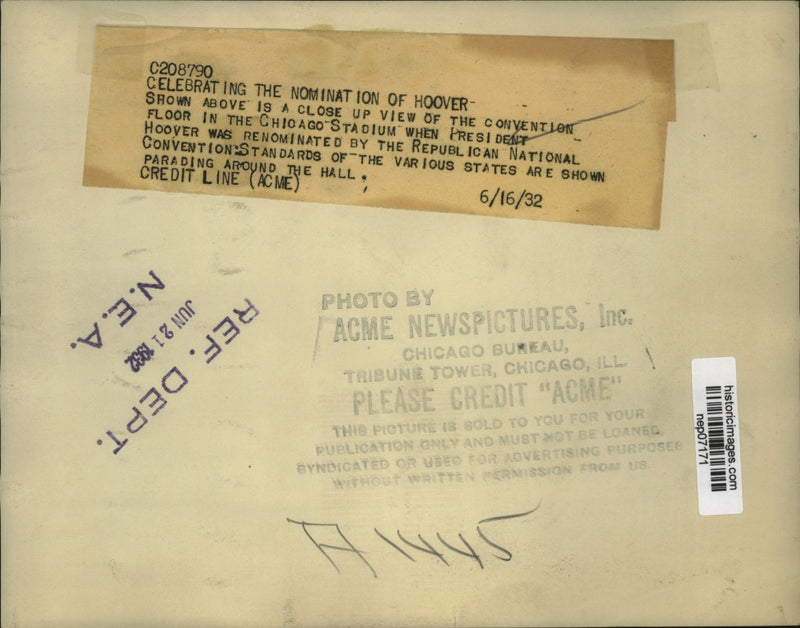 C208790
CELEBRATING THE NOMINATION OF HOOVER-
SHOWN ABOVE IS A CLOSE UP VIEW OF THE CONVENTION
FLOOR IN THE CHICAGO STADIUM WHEN PRESIDENT
HOOVER WAS RENOMINATED BY THE REPUBLICAN NATIONAL
CONVENTION. STANDARDS OF THE VARIOUS STATES ARE SHOWN
PARADING AROUND THE HALL.
CREDIT LINE (ACME)
6/16/32
REF. DEPT.
JUN 21 1932
N.E.A.
PHOTO BY
ACME NEWSPICTURES, Inc.
CHICAGO BUREAU,
TRIBUNE TOWER, CHICAGO, ILL.
PLEASE CREDIT "ACME"
THIS PICTURE IS SOLD TO YOU FOR YOUR
PUBLICATION ONLY AND MUST NOT BE LOANED
SYNDICATED OR USED FOR ADVERTISING PURPOSES
WITHOUT WRITTEN PERMISSION FROM US
historicimages.com
nep07171
A1445